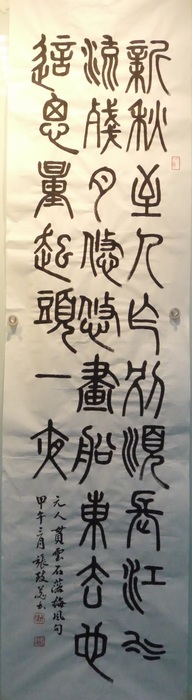 新秋至人乍別順長江水
流殘月悠悠畫船東去也
這思量起頭一夜
元人貫雲石落梅風句
甲午三月